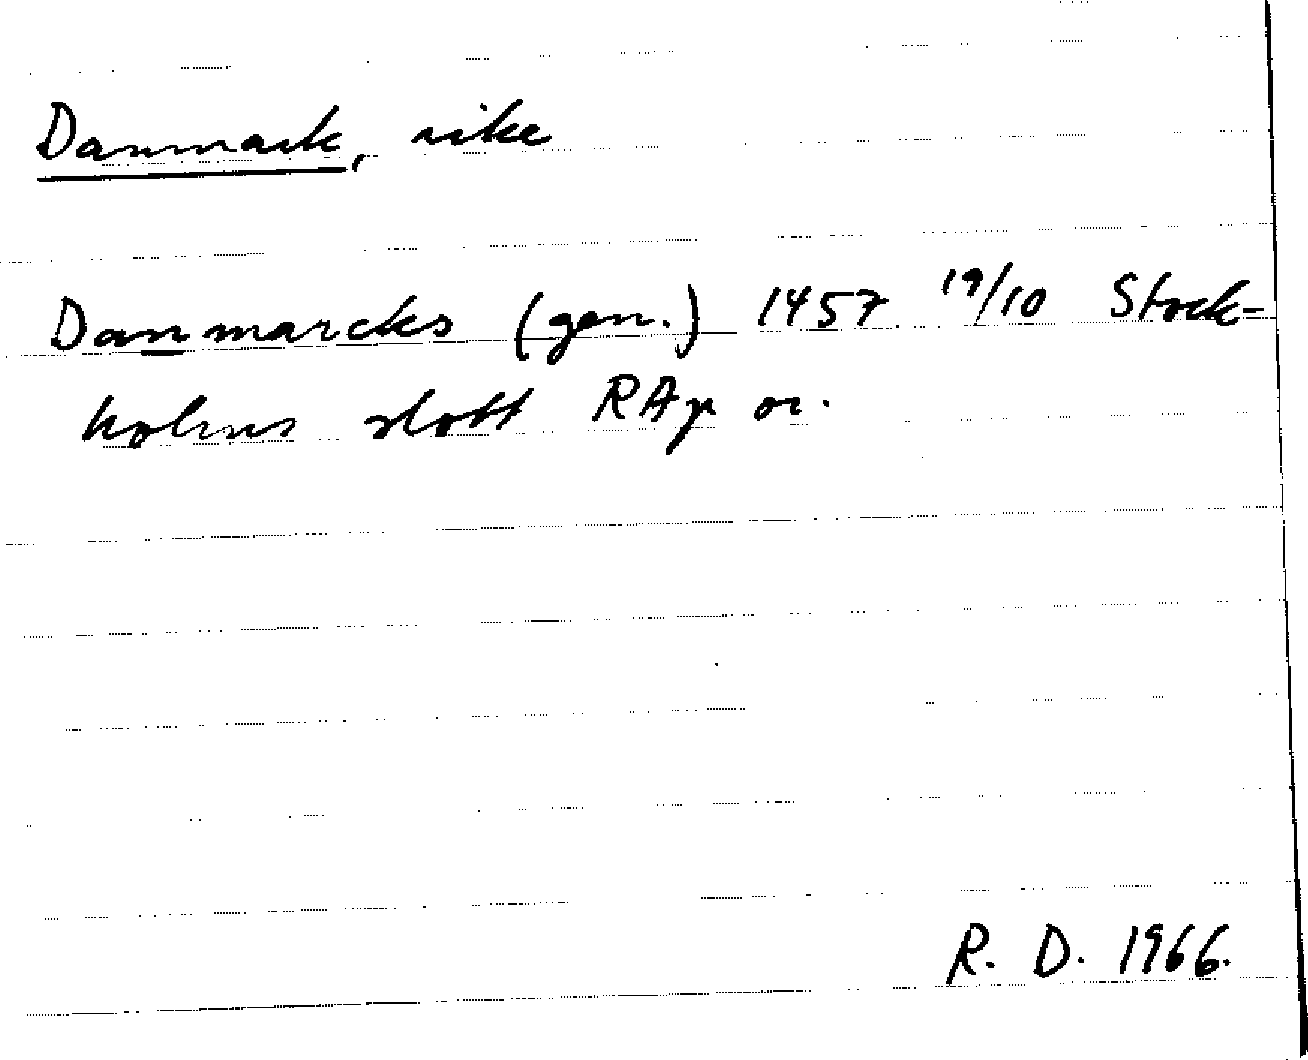 Danmark, rike
Danmarcks (gen.) 1457 19/10 Stock-
holms slott RAp or.
R. D. 1966.